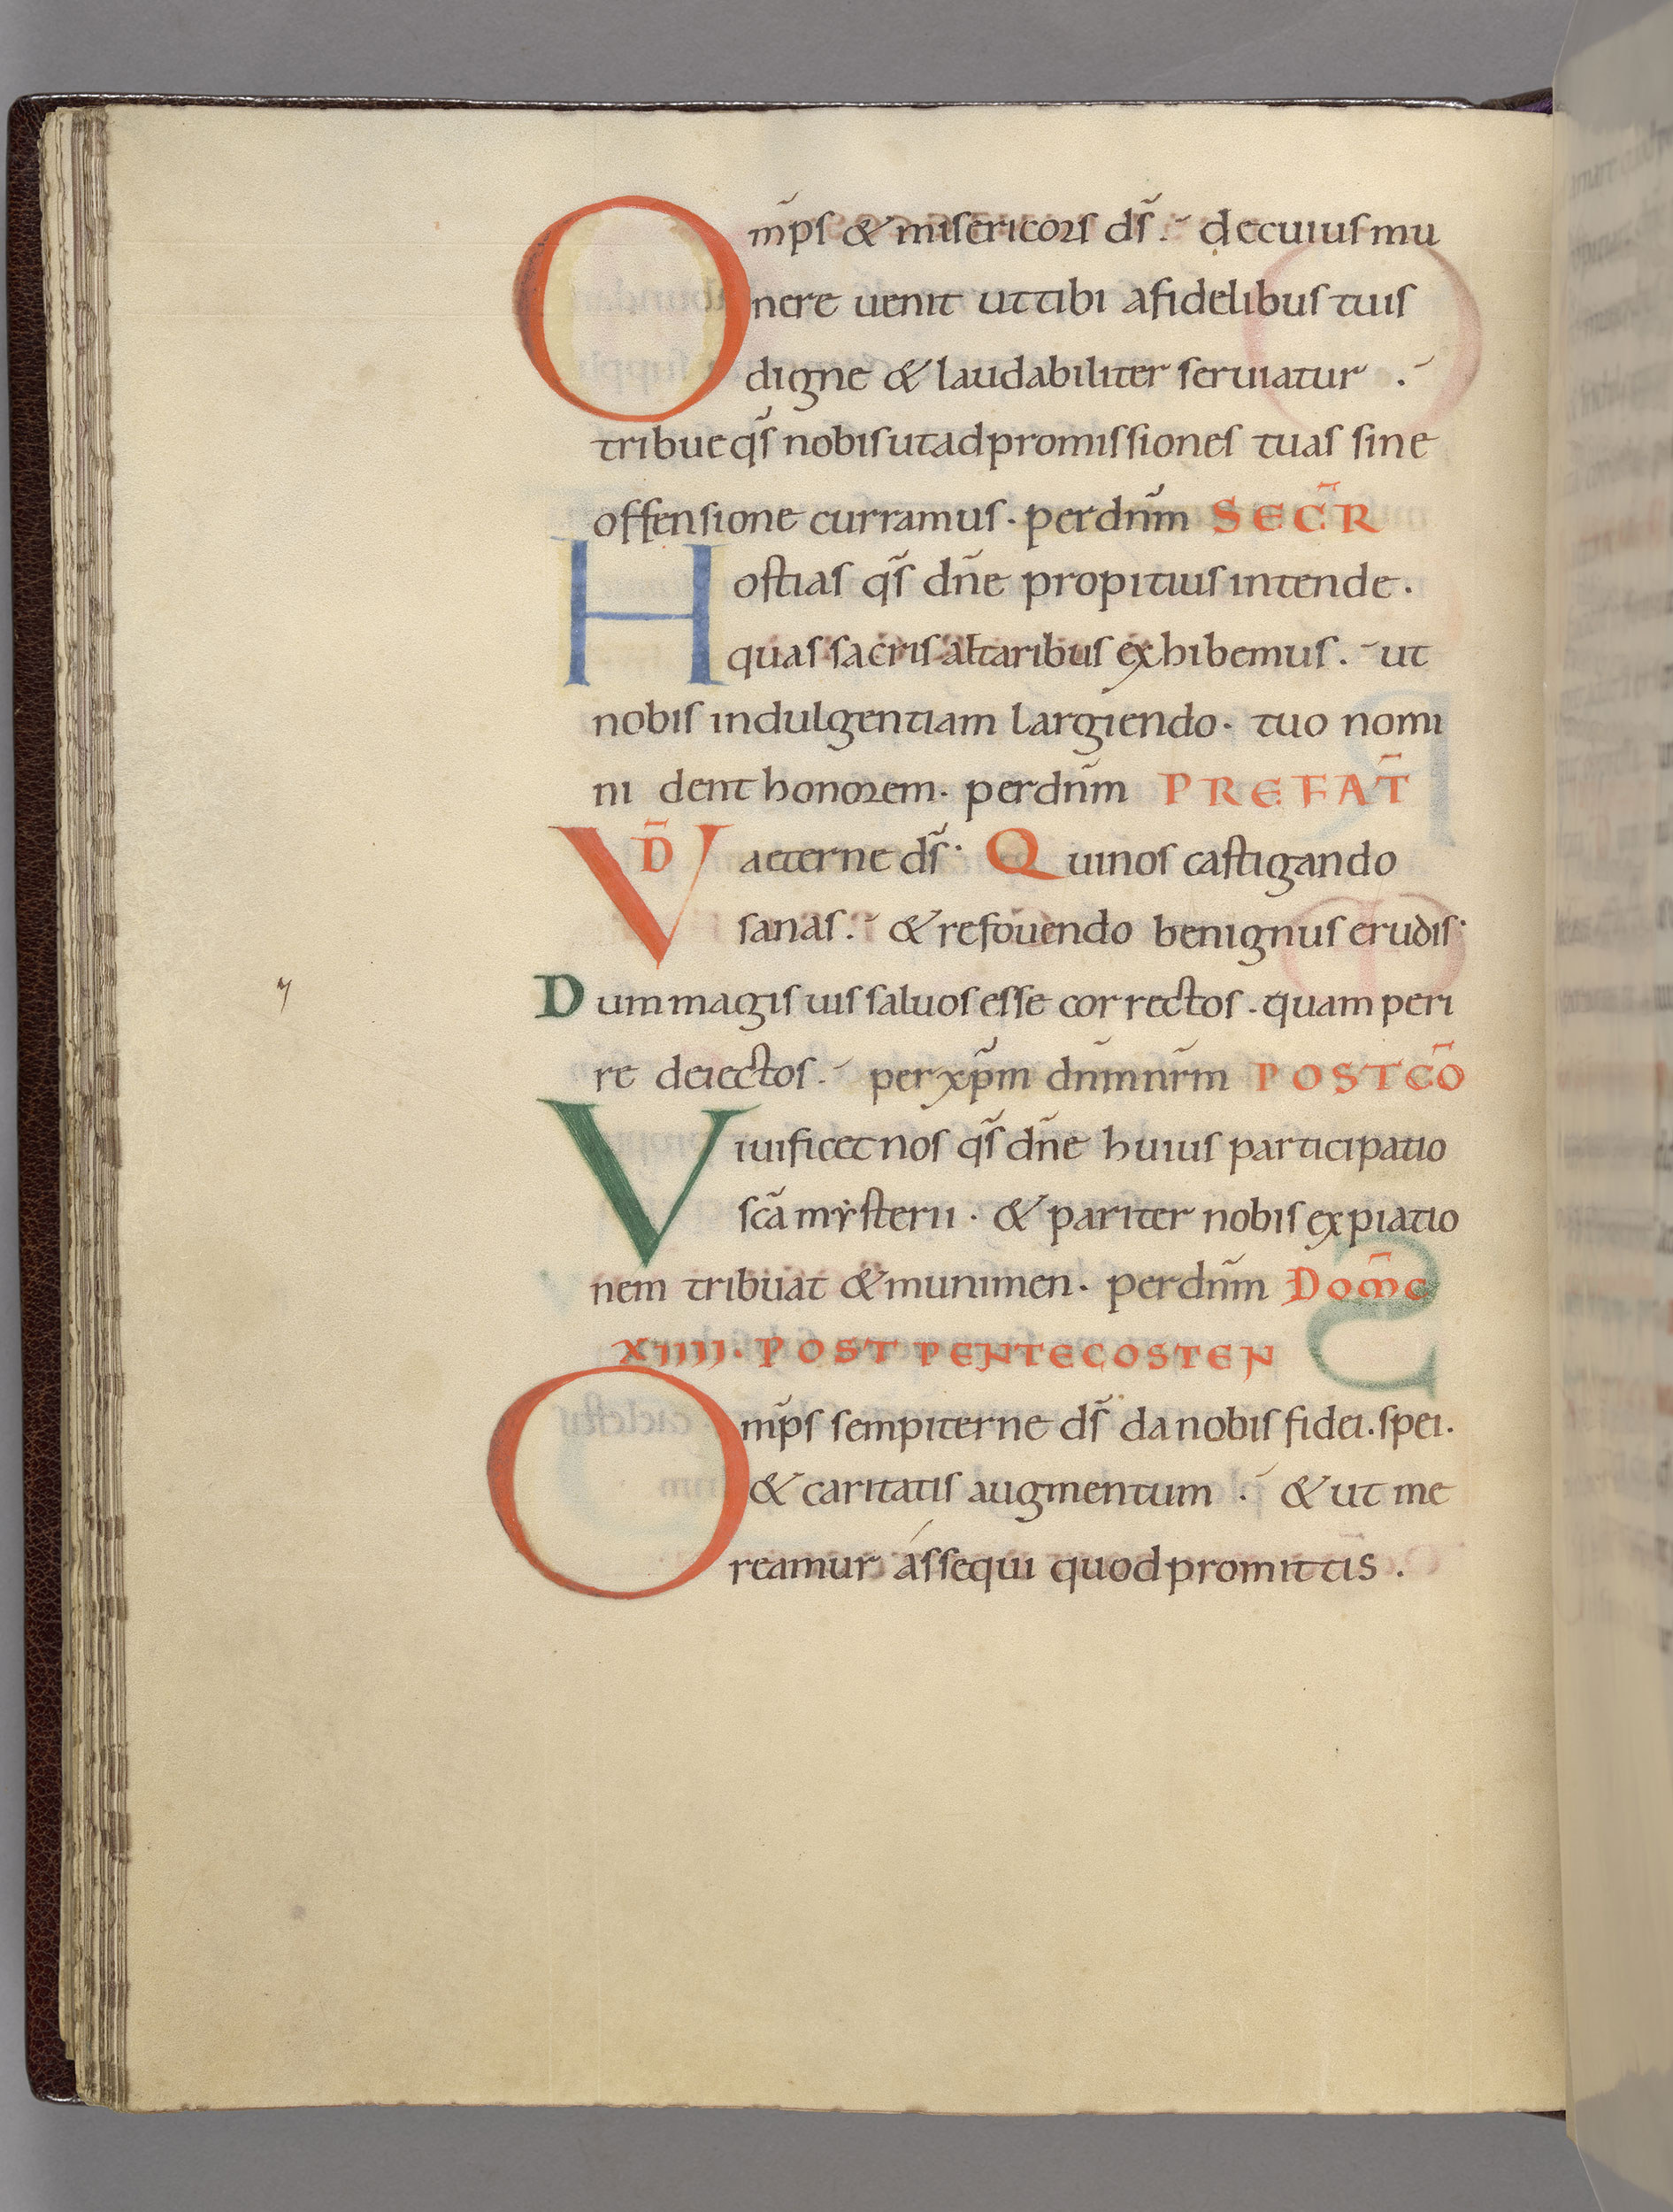 Om̃ps & misericors ds̃. de cuius mu
nere uenit ut tibi a fidelibus tuis
digne & laudabiliter seruiatur .
tribue qs̃ nobis ut ad promissiones tuas sine
offensione curramus. per dnm̃ SECR̃
Hostias qs̃ dñe propitius intende.
quas sacris altaribus exhibemus. ut
nobis indulgentiam largiendo. tuo nomi
ni dent honorem. per dnm̃ PREFAT̃
VD̃ aeterne ds̃. Qui nos castigando
sanas. & refouendo benignus erudis.
Dum magis uis saluos esse correctos. quam peri
re deiectos. per xp̃m dnm̃ nrm̃ POSTCÕ
Viuificet nos qs̃ dñe huius participatio
scã mẏsterii. & pariter nobis expiatio
nem tribuat & munimen. per dnm̃ Dom̃c
XIIII. POST PENTECOSTEN
Om̃ps sempiterne ds̃ da nobis fidei. spei.
& caritatis augmentum . & ut me
reamur ássequi quod promittis .